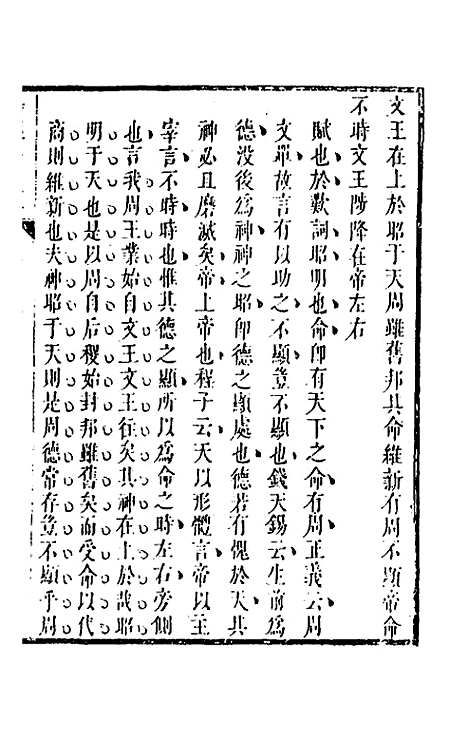 文王在上於昭于天周雖舊邦其命維新有周不顯帝命
不時文王陟降在帝左右
賦也於歎詞昭明也命即有天下之命有周正義云周
文單故言有以助之不顯豈不顯也錢天錫云生前為
德没後為神神之昭即德之顯處也德若有愧於天其
神必且磨滅矣帝上帝也程子云天以形體言帝以主
宰言不時時也惟其德之顯所以為命之時左右旁側
也言我周王業始自文王文王往矣其神在上於哉昭
明于天也是以周自后稷始封邦雖舊矣而受命以代
商則維新也夫神昭于天則是周德常存豈不顯乎周